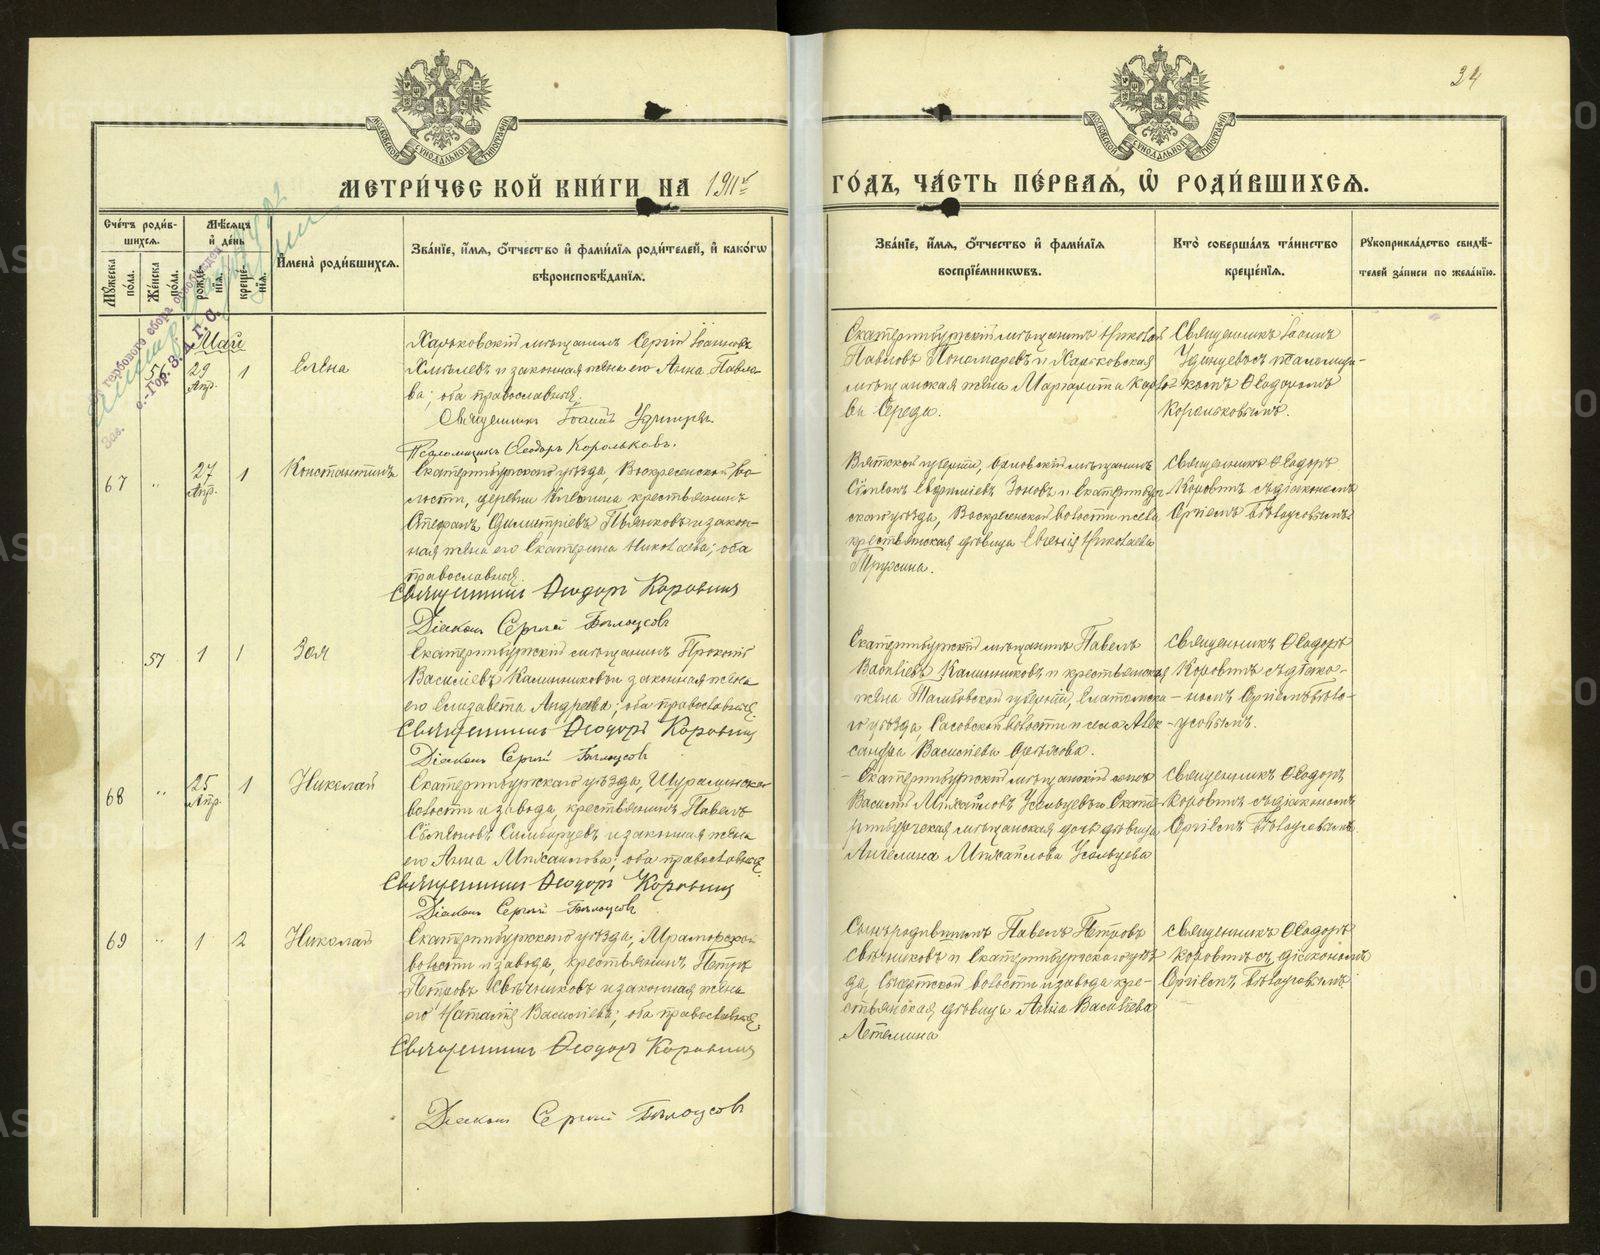 34
МЕТРИ́ЧЕСКОЙ КНИ́ГИ НА 1911 г.
ГО́ДЪ, ЧА́СТЬ ПЕ́РВАЯ, Ѡ҆ РОДИ́ВШИХСЯ.
Сче́тъ роди́в-
шихся.
Мꙋ́жеска по́ла.
Же́нска по́ла.
Мѣ́сяцъ
и҆ де́нь
рожде́нїя.
креще́нїя.
И҆мена̀ роди́вшихся.
Зва́нїе, и҆́мя, ѻ҆́тчество и҆ фами́лїя роди́телей, и҆ како́гѡ
вѣроисповѣ́данїя.
Зва́нїе, и҆́мя, ѻ҆́тчество и҆ фами́лїя
воспрїе́мникѡвъ.
Кто̀ соверша́лъ та́инство
креще́нїя.
Рꙋкоприкла́дство свидѣ́-
телей за́писи по жела́нїю.
Май
56 29 Апр. 1 Елена
Харьковскій мѣщанинъ Сергій Іоанновъ
Хмѣлевъ и законная жена его Анна Павло-
ва; оба православные.
Священникъ Іоаннъ
Псаломщикъ Ѳеодоръ Корольковъ.
Екатеринбургскій мѣщанинъ Николай
Павловъ Пономаревъ и Харьковская
мѣщанская жена Маргарита
Середа.
Священникъ Іоаннъ
съ псаломщи-
комъ Ѳеодоромъ
Корольковымъ.
67 " 27 Апр. 1 Константинъ
Екатеринбургскаго уѣзда, Воскресенской во-
лости, деревни крестьянинъ
Стефанъ Димитріевъ Пьянковъ и закон-
ная жена его Екатерина Николаева; оба
православные.
Священникъ Ѳеодоръ Коровинъ
Діаконъ Сергій Бѣлоусовъ
Вятской губерніи, Орловскій мѣщанинъ
Сѵмеонъ Евфиміевъ Зоновъ и Екатеринбург-
скаго уѣзда, Воскресенской волости и села
крестьянская дѣвица Евгенія Николаева
Трухина.
Священникъ Ѳеодоръ
Коровинъ съ діакономъ
Сергіемъ Бѣлоусовымъ
57 1 1 Зоя
Екатеринбургскій мѣщанинъ Прокопій
Василіевъ Калинниковъ и законная жена
его Елизавета Андреева; оба православные.
Священникъ Ѳеодоръ Коровинъ
Діаконъ Сергій Бѣлоусовъ
Екатеринбургскій мѣщанинъ Павелъ
Василіевъ Калинниковъ и крестьянская
жена Тамбовской губерніи, Елатомска-
го уѣзда, Сасовской волости и села Алек-
сандра Василіева
Священникъ Ѳеодоръ
Коровинъ съ діако-
номъ Сергіемъ Бѣло-
усовымъ.
68 " 25 Апр. 1 Николай
Екатеринбургскаго уѣзда, Шуралинской
волости и завода, крестьянинъ Павелъ
Сѵмеоновъ Симбирцевъ и законная жена
его Анна Михаилова; оба православные.
Священникъ Ѳеодоръ Коровинъ
Діаконъ Сергій Бѣлоусовъ
Екатеринбургскій мѣщанскій сынъ
Василій Михайловъ Усольцевъ и Екате-
ринбургская мѣщанская дочь дѣвица
Ангелина Михайлова Усольцева
Священникъ Ѳеодоръ
Коровинъ съ діакономъ
Сергіемъ Бѣлоусовымъ.
69 " 1 2 Николай
Екатеринбургскаго уѣзда, Мраморской
волости и завода, крестьянинъ Петръ
Петровъ Свѣчниковъ и законная жена
его Наталія Василіева; оба православные.
Священникъ Ѳеодоръ Коровинъ
Діаконъ Сергій Бѣлоусовъ
Сынъ родившихъ Павелъ Петровъ
Свѣчниковъ и Екатеринбургскаго уѣз-
да, Сысертской волости и завода кре-
стьянская дѣвица Анна Василіева
Летемина
Священникъ Ѳеодоръ
Коровинъ съ діакономъ
Сергіемъ Бѣлоусовымъ